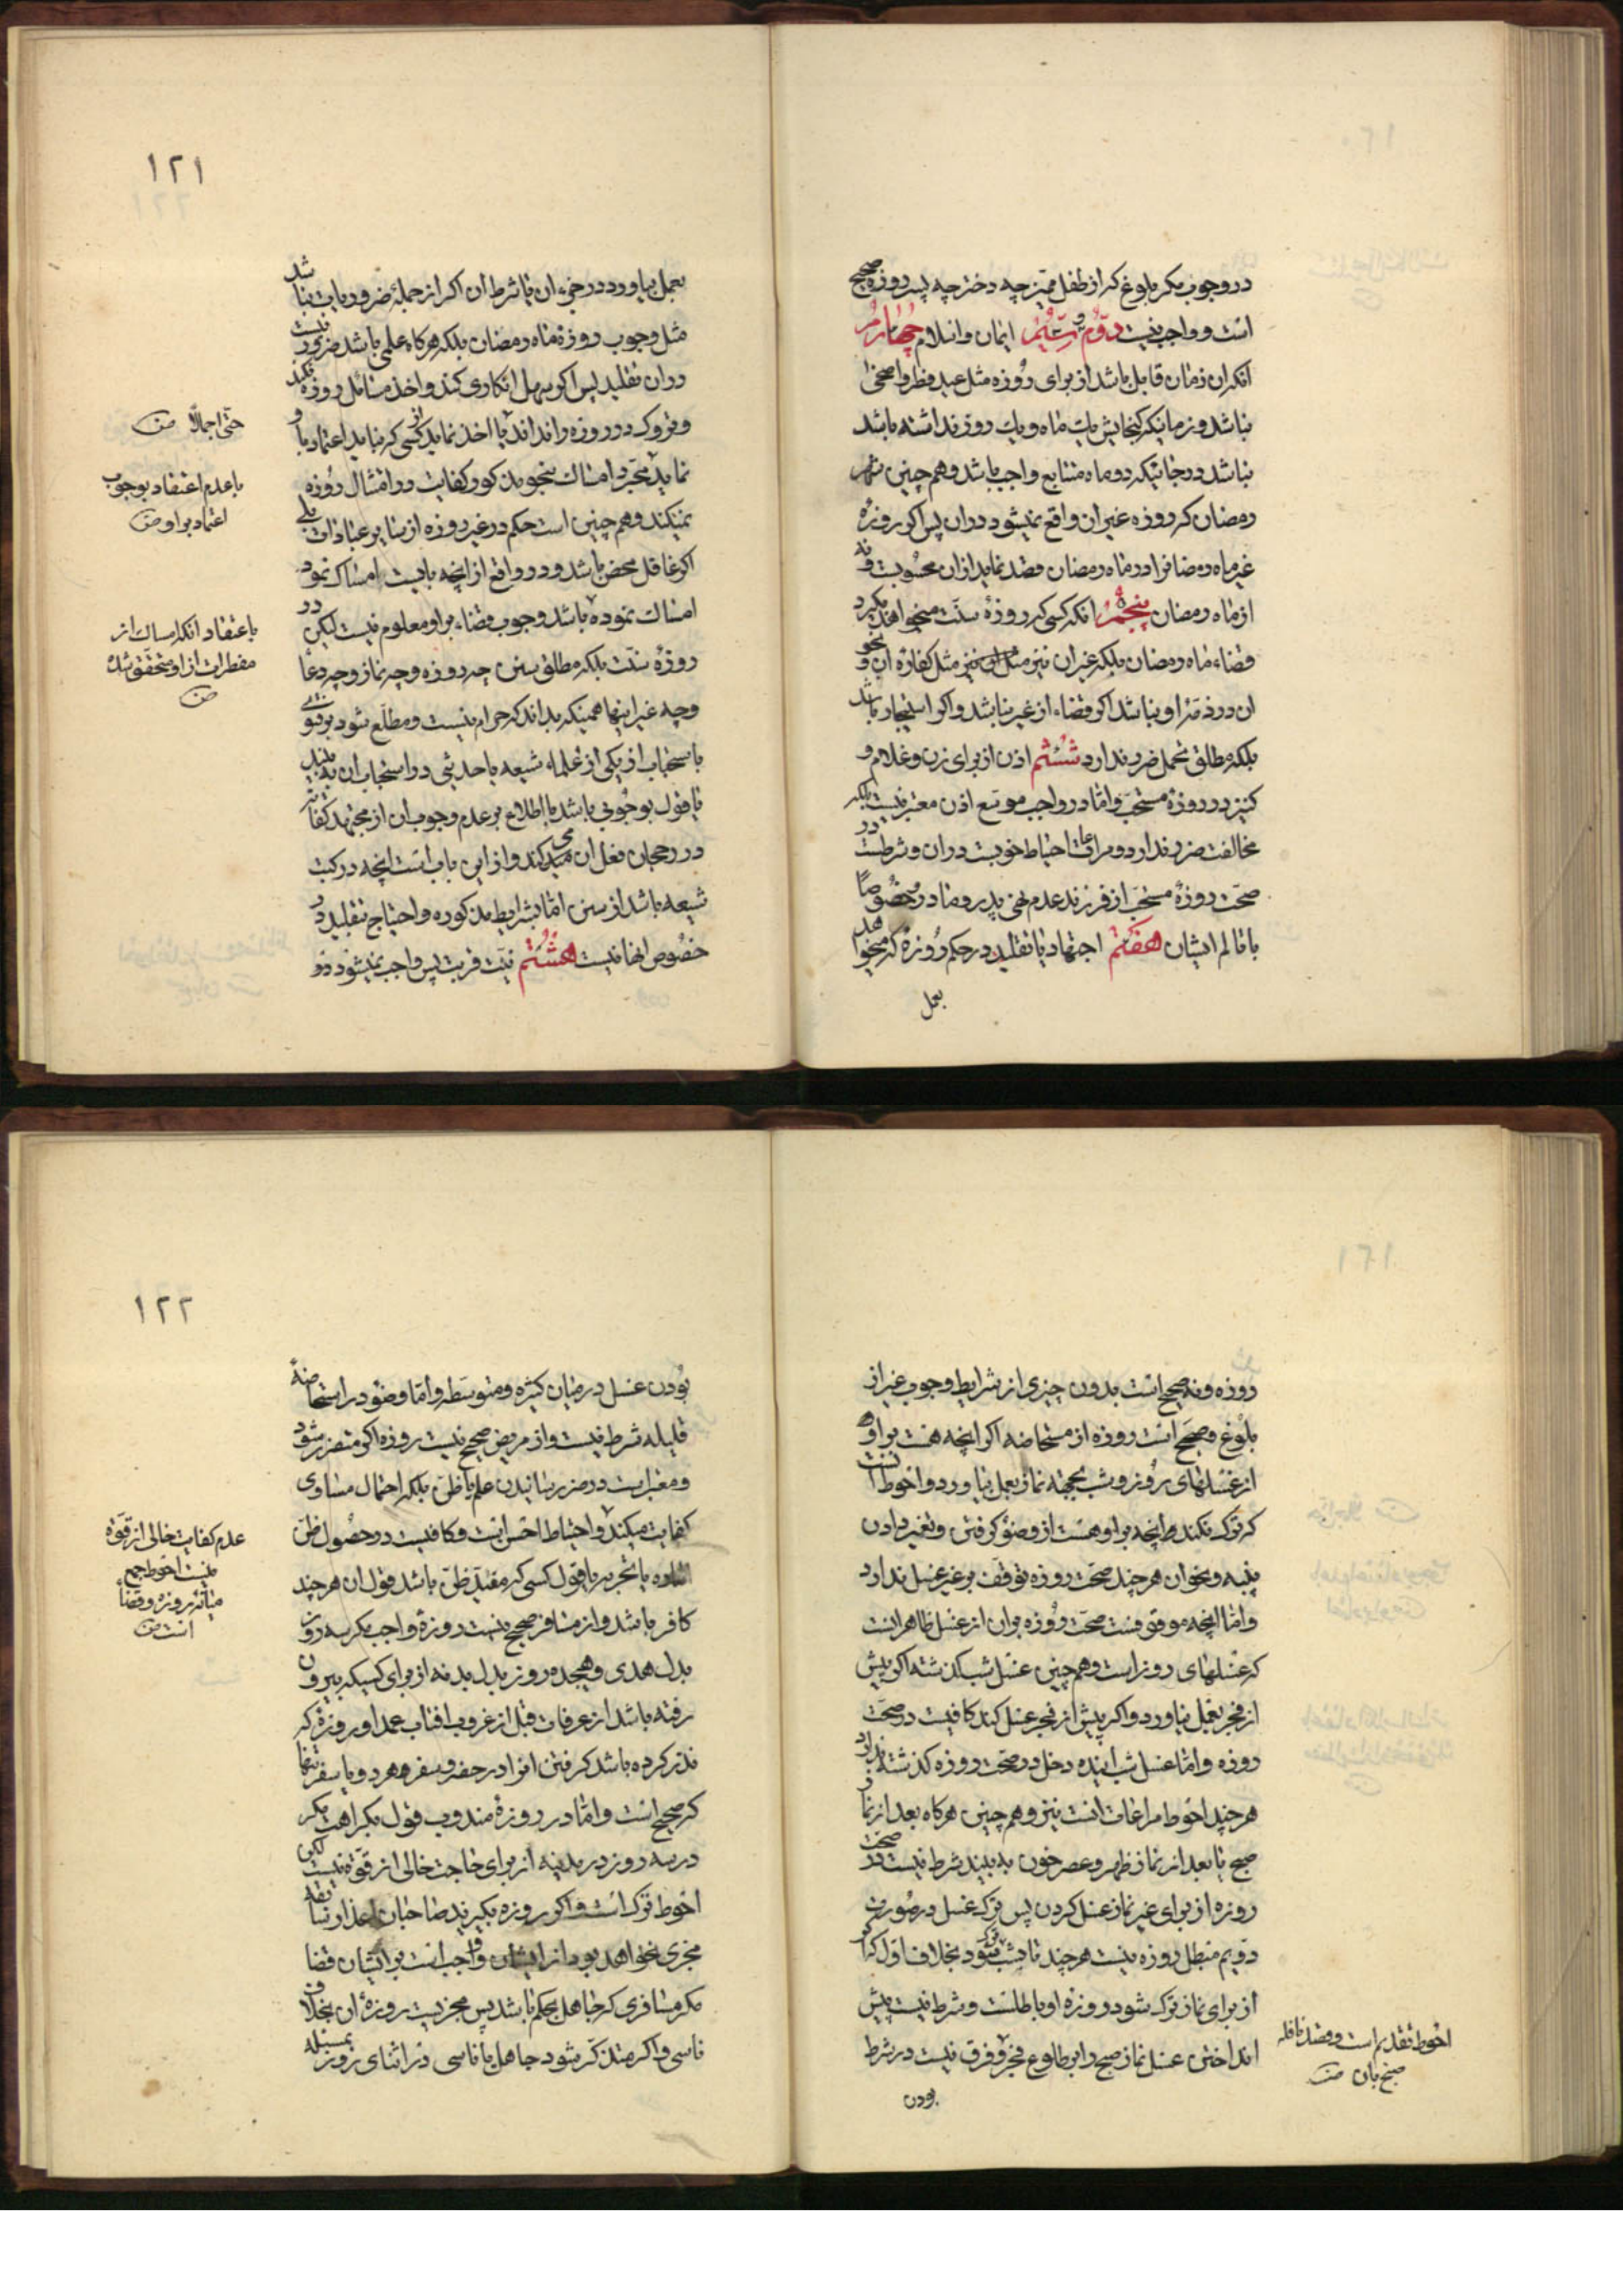 در وجوب مکر بلوغ که از طفل ممیز چه دختر چه پسر روزه صحیح
است و واجب نیست دوّم و سیّم ایمان و اسلام چهارم
آنکه ان زمان قابل باشد از برای روزه مثل عید فطر و اضحی
نباشد و زمانیکه کنجایش یک ماه و یک روز نداشته باشد
نباشد در جائیکه دو ماه متتابع واجب باشد و هم چنین شهر
رمضان که روزه غیر ان واقع نمیشود در ان پس اکر روزهٔ
غیر ماه رمضانرا در ماه رمضان قصد نماید از ان محسوبست و نه
از ماه رمضان پنجم انکه کسی که روزهٔ سنّت میخواهد بکیرد
قضاء ماه رمضان بلکه غیر ان نیز مثل کفاره ان و نحو
ان در ذمّه او نباشد اکر قضاء از غیر نباشد و اکر استیجار باشد
بلکه مطلق تحمل ضرر ندارد ششم اذن از برای زن و غلام و
کنیز در روزهٔ مستحبّ و امّا در واجب موسع اذن معتبر نیست بلکه
مخالفت ضرر ندارد و مراعات احتیاط خوبست در ان و شرطست در
صحّت روزهٔ مستحبّ از فرزند عدم نهی پدر و مادر خصُوصًا
با تالم ایشان هفتم اجتهاد یا تقلید در حکم روزهٔ که میخواهد
بعمل
۱۲۱
بعمل بیاورد در جزء ان یا شرط ان اکر از جملهٔ ضروریات نباشد
مثل وجوب روزهٔ ماه رمضان بلکه هر کاه علمی باشد ضرور نیست
در ان تقلید پس اکر سهل انکاری کند و اخذ مسائل روزه نکند
و تروک در روزه را نداند یا اخذ نماید از کسی که نباید اعتماد باو
نماید مجرّد امساک بنحو مذکور کفایت در امتثال روزه
نمیکند و هم چنین است حکم در غیر روزه از سایر عبادات بلی
اکر غافل محض باشد و در واقع از انچه بایست امساک نمود
امساک نموده باشد وجوب قضاء بر او معلوم نیست لیکن در
روزهٔ سنّت بلکه مطلق سنن چه روزه و چه نماز و چه دعا
و چه غیر اینها همینکه بداند که حرام نیست و مطلع شود بر فتوی
باستحباب از یکی از علماء شیعه یا حدیثی در استحباب ان به بیند
یا قول بوجوبی باشد با اطلاع بر عدم وجوب ان از مجتهد کفایت
در رجحان فعل ان میکند و از این باب است انچه در کتب
شیعه باشد از سنن امّا بشرایط مذکوره و احتیاج تقلید در
خصُوص انها نیست هشتم نیّت قربت پس واجب نمیشود
حتّی اجمالًا منه
با عدم اعتقاد بوجوب
اعتماد بر او منه
باعتقاد انکه امساک از
مفطرات از او متحقّق شده
منه
روزه و نه صحیح است بدون چیزی از شرایط وجوب غیر از
بلوغ و صحیح است روزه از مستحاضه اکر انچه هست بر او
از غسلهای روز و شب بجهته نماز بعمل بیاورد و احوط انست
که ترک نکند انچه بر او هست از وضو کرفتن و تغییر دادن
پنبه و نحو ان هر چند صحّت روزه توقّف بر غیر غسل ندارد
و امّا انچه موقوفست صحّت روزه بر ان از غسل ظاهر انست
که غسلهای روز است و هم چنین غسل شب کذشته اکر پیش
از فجر بعمل نیاورد و اکر پیش از فجر غسل کند کافیست در صحّت
روزه و امّا غسل شب اینده دخل در صحّت روزه کذشته ندارد
هر چند احوط مراعات انست نیز و هم چنین هر کاه بعد از نماز
صبح یا بعد از نماز ظهر و عصر خون به بیند شرط نیست در صحّت
روزه از برای غیر نماز غسل کردن پس ترک غسل در صورت
دویم مبطل روزه نیست هر چند تا شب شود بخلاف اوّل که اکر
از برای نماز ترک شود روزه او باطلست و شرط نیست پیش
انداختن غسل نماز صبح را بر طلوع فجر و فرق نیست در شرط
بودن
احوط تقدیم است و قصد نافله
صبح بان منه
۱۲۲
بودن غسل در میان کثیره و متوسّطه و امّا وضو در استحاضهٔ
قلیله شرط نیست و از مریض صحیح نیست روزه اکر متضرر شود
و معتبر است در ضرر رسانیدن علم یا ظنّ بلکه احتمال مساوی
کفایت میکند و احتیاط احسن است و کافیست در حصُول ظنّ
اماره یا تجربه یا قول کسی که مفید ظنّ باشد قول ان هر چند
کافر باشد و از مسافر صحیح نیست روزهٔ واجب مکر سه روز
بدل هدی و هیجده روز بدل بدنه از برای کسیکه بیرون
رفته باشد از عرفات قبل از غروب افتاب عمدا و روزهٔ که
نذر کرده باشد کرفتن انرا در حضر و سفر هر دو یا سفر تنها
که صحیح است و امّا در روزهٔ مندوب قول بکراهت مکر
در سه روز در مدینه از برای حاجت خالی از قوّة نیست لکن
احوط ترک است و اکر روزه بکیرند صاحبان اعذار سابقه
مجزی نخواهد بود از ایشان و واجب است بر ایشان قضا
مکر مسافری که جاهل بحکم باشد پس مجزیست روزهٔ ان بخلاف
ناسی و اکر متذکّر شود جاهل یا ناسی در اثنای روز بمسئله
عدم کفایت خالی از قوّة
نیست احوط جمع
میانه روزه و قضاء
است منه